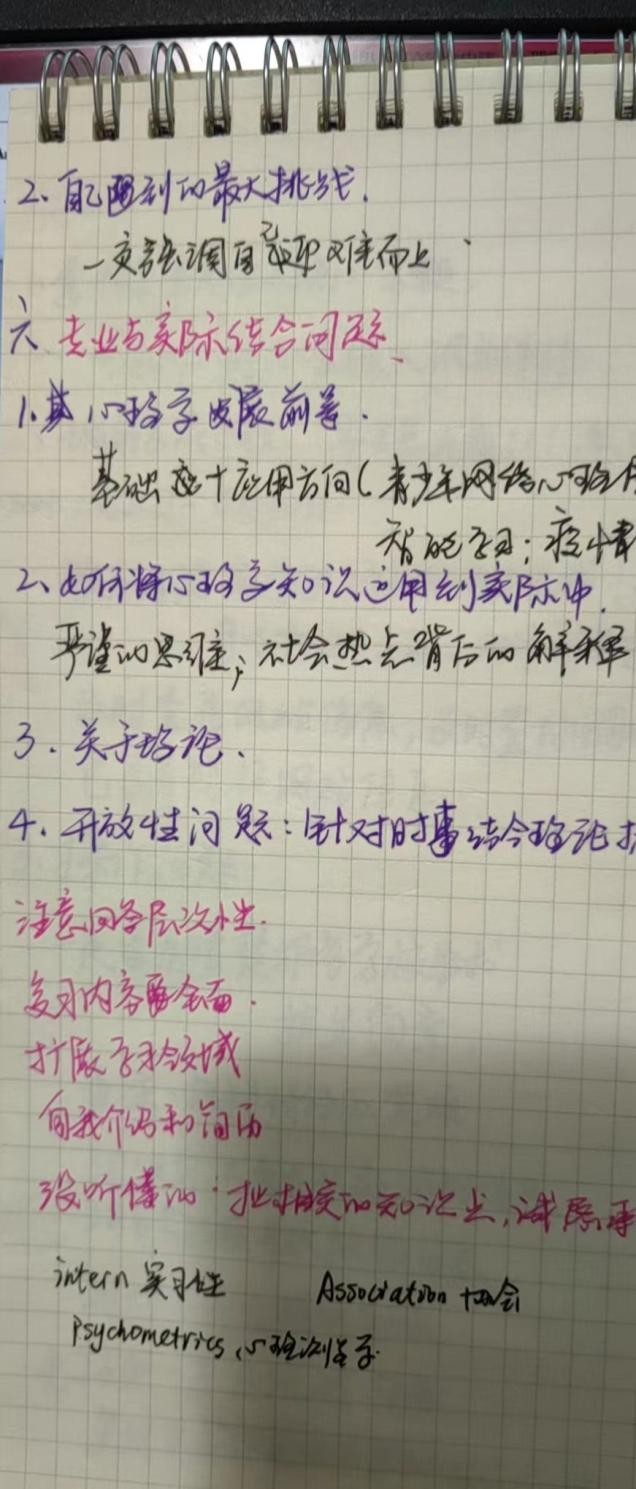 2、自己遇到的最大挑战.
一定强调自己迎难而上.
六、专业与实际结合问题、
1.其心理学发展前景.
基础+应用方向(青少年网络心理
智能学习;疫情
2、如何将心理学知识运用到实际中.
严谨的思维;社会热点背后的解释
3.关于理论、
4、开放性问题:针对时事结合理论
注意回答层次性.
复习内容要全面.
扩展学术领域
自我介绍和简历
没听懂的·扯相关的知识点,诚恳
intern 实习生 Association 协会
Psychometrics 心理测量学